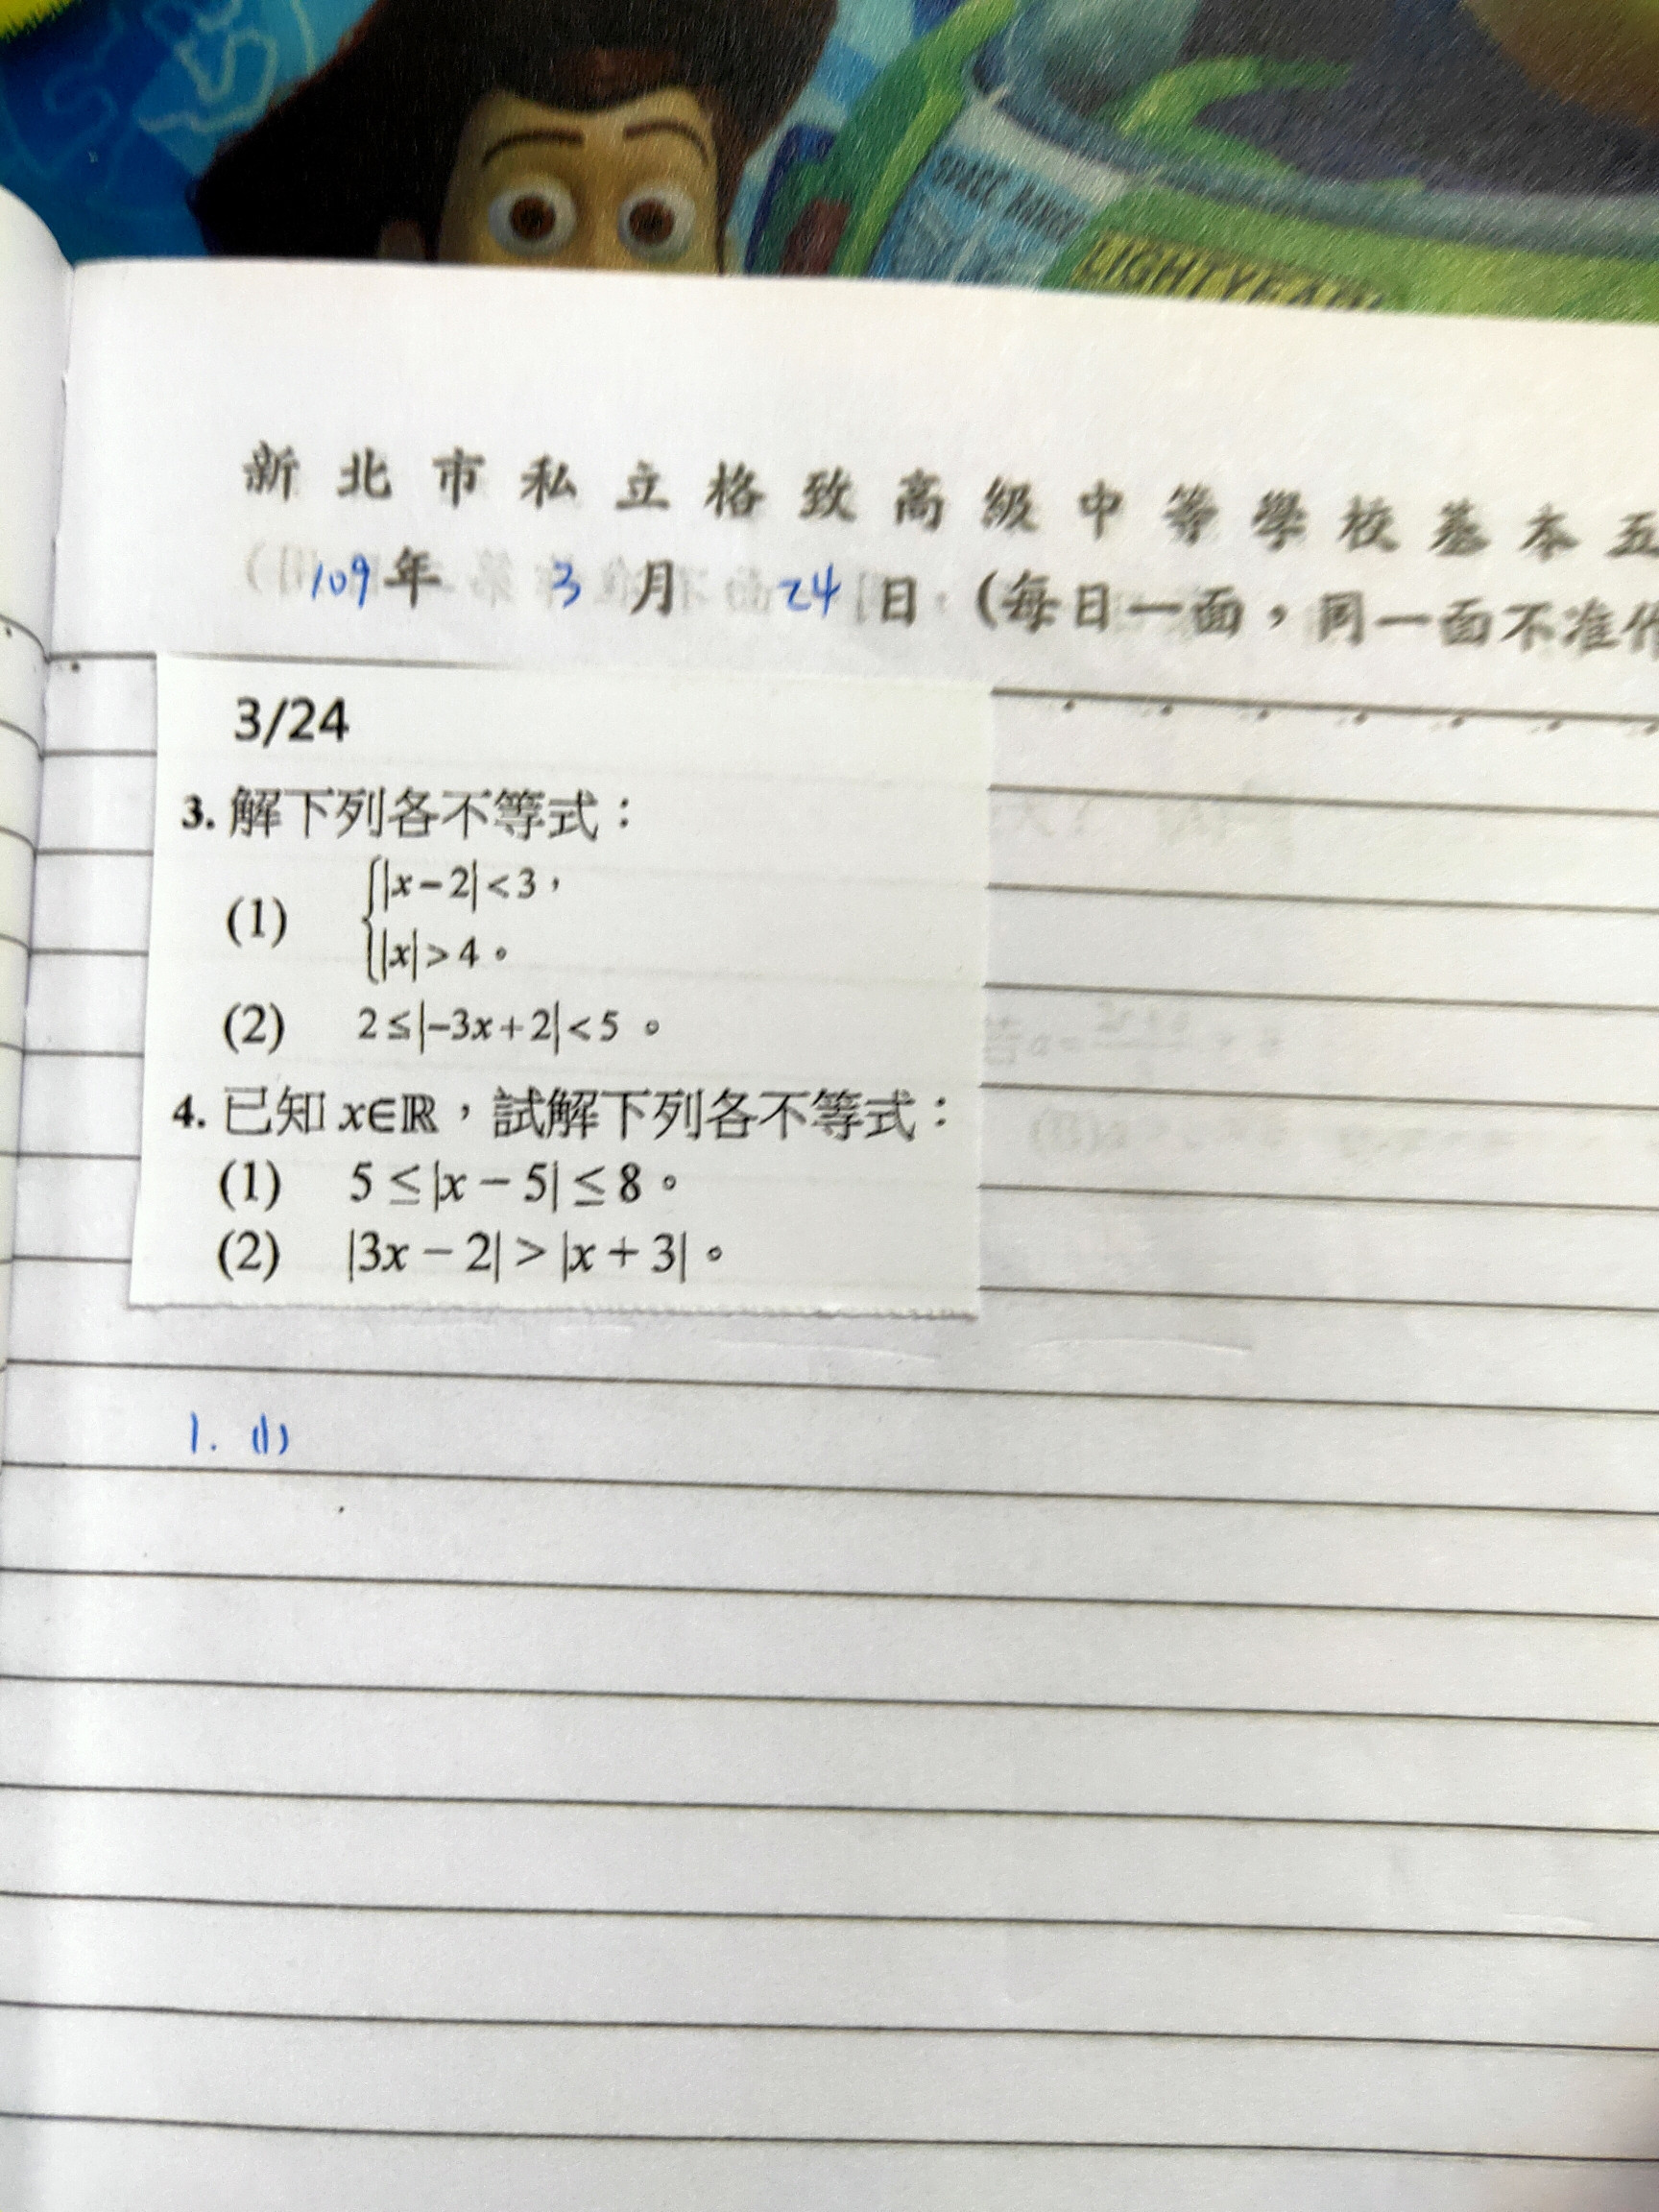 SPACE RANGER
LIGHTYEAR
新北市私立格致高級中等學校基本五
109年 3月 24日 (每日一面，同一面不准作
3/24
3. 解下列各不等式：
(1) { |x-2|<3，
|x|>4。
(2) 2≤|-3x+2|<5。
4. 已知 x∈ℝ，試解下列各不等式：
(1) 5≤|x-5|≤8。
(2) |3x-2|>|x+3|。
1. (1)